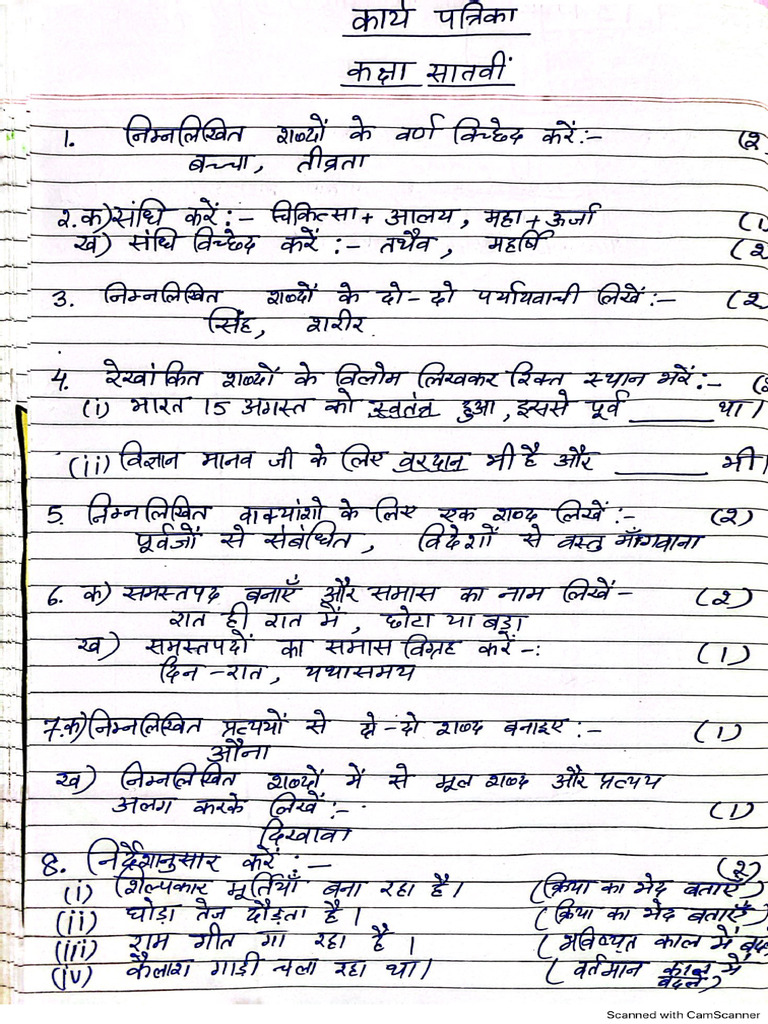 कार्य पत्रिका
कक्षा सातवीं
1. निम्नलिखित शब्दों के वर्ण विच्छेद करें:- (२
बच्चा, तीव्रता
२.क) संधि करें:- चिकित्सा + आलय, महा + ऊर्जा (1
ख) संधि विच्छेद करें:- तथैव, महर्षि (२
3. निम्नलिखित शब्दों के दो-दो पर्यायवाची लिखें:- (२
सिंह, शरीर
4. रेखांकित शब्दों के विलोम लिखकर रिक्त स्थान भरें:- (२
(i) भारत 15 अगस्त को स्वतंत्र हुआ, इससे पूर्व ______ था।
(ii) विज्ञान मानव जी के लिए वरदान भी है और ______ भी।
5. निम्नलिखित वाक्यांशो के लिए एक शब्द लिखें:- (२)
पूर्वजों से संबंधित, विदेशों से वस्तु मँगवाना
6. क) समस्तपद बनाएँ और समास का नाम लिखें- (२)
रात ही रात में, छोटा या बड़ा
ख) समस्तपदों का समास विग्रह करें-: (1)
दिन-रात, यथासमय
7.क) निम्नलिखित प्रत्ययों से दो-दो शब्द बनाइए:- (1)
औना
ख) निम्नलिखित शब्दों में से मूल शब्द और प्रत्यय
अलग करके लिखें:- (1)
दिखावा
8. निर्देशानुसार करें:- (२)
(i) शिल्पकार मूर्तियाँ बना रहा है। (क्रिया का भेद बताएँ)
(ii) घोड़ा तेज दौड़ता है। (क्रिया का भेद बताएँ)
(iii) राम गीत गा रहा है। (भविष्यत् काल में
(iv) कैलाश गाड़ी चला रहा था। (वर्तमान काल में
बदलें)
Scanned with CamScanner